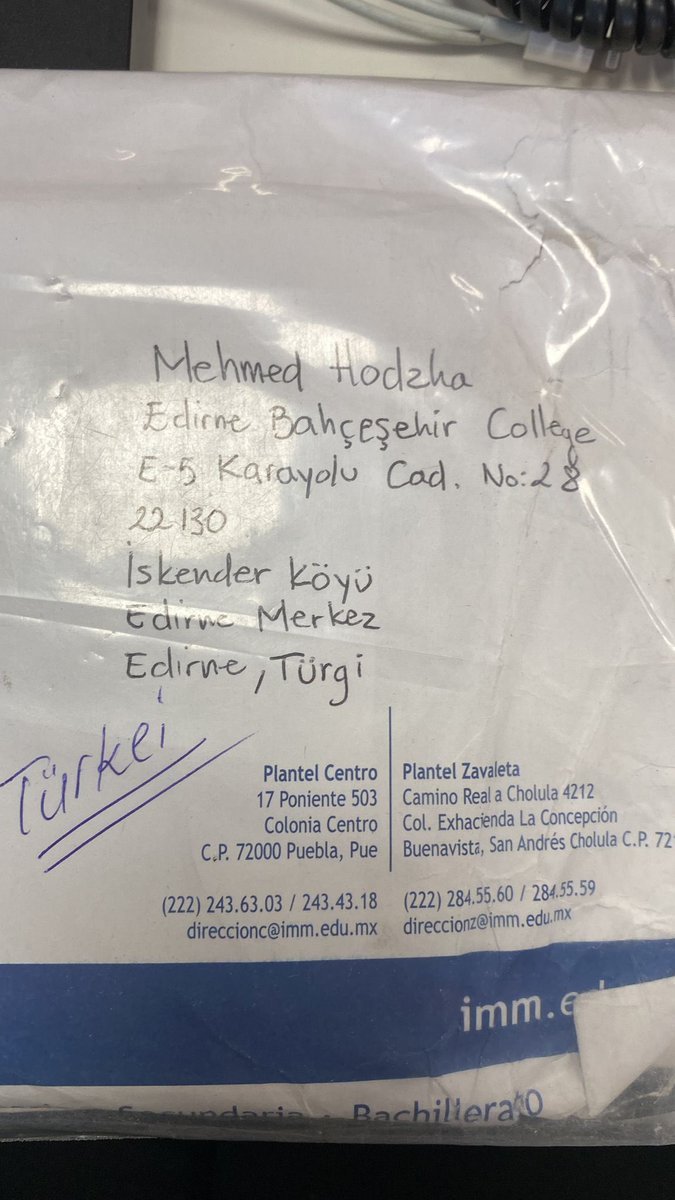 Mehmed Hodzha
Edirne Bahçeşehir College
E-5 Karayolu Cad. No:28
22130
İskender Köyü
Edirne Merkez
Edirne, Türgi
Türkei
Plantel Centro
17 Poniente 503
Colonia Centro
C.P. 72000 Puebla, Pue
(222) 243.63.03 / 243.43.18
direccionc@imm.edu.mx
Plantel Zavaleta
Camino Real a Cholula 4212
Col. Exhacienda La Concepción
Buenavista, San Andrés Cholula C.P. 72
(222) 284.55.60 / 284.55.59
direccionz@imm.edu.mx
imm.ed
Secundaria · Bachillerato